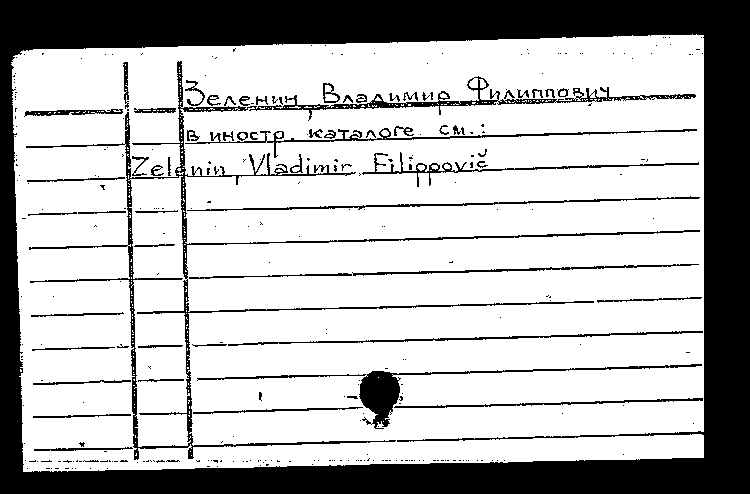 Зеленин, Владимир Филиппович
в иностр. каталоге см.:
Zelenin, Vladimir Filippovič